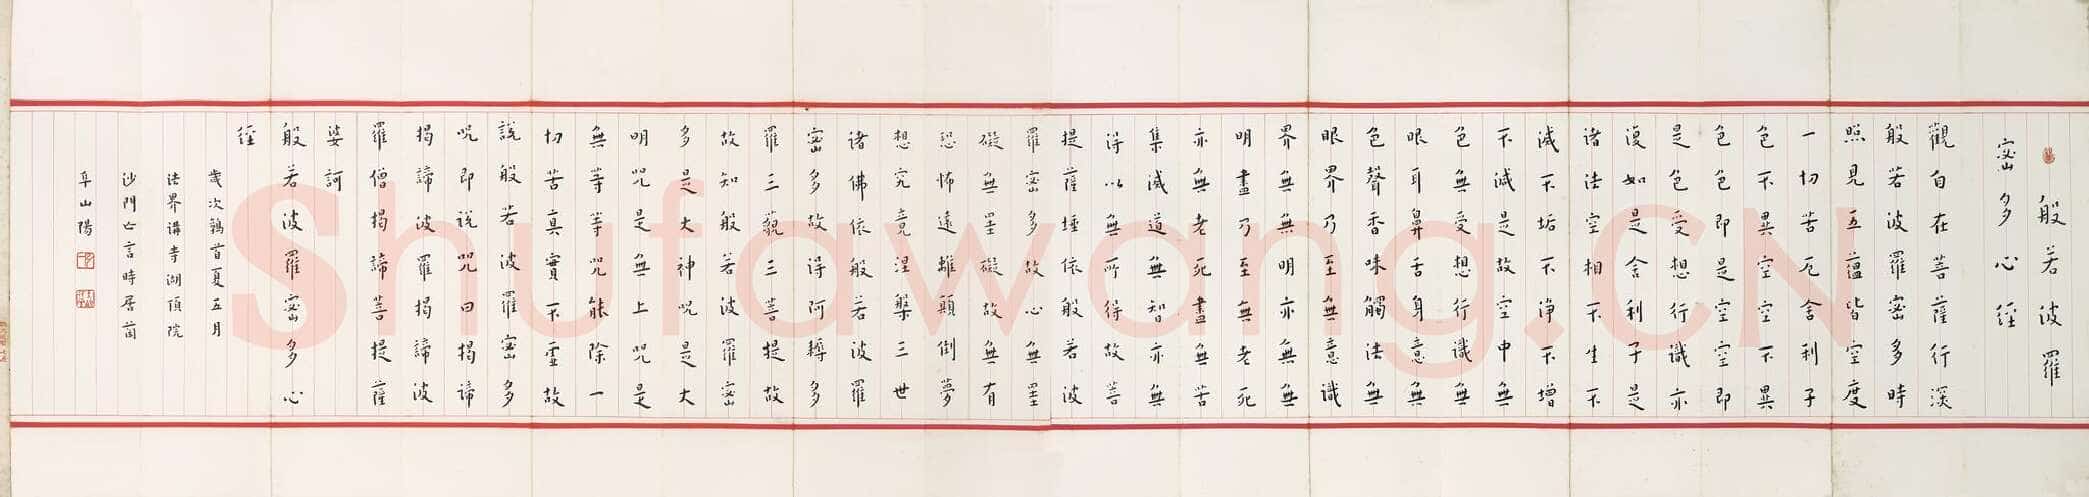 般若波羅
蜜多心經
觀自在菩薩行深
般若波羅蜜多時
照見五蘊皆空度
一切苦厄舍利子
色不異空空不異
色色即是空空即
是色受想行識亦
復如是舍利子是
諸法空相不生不
滅不垢不淨不增
不減是故空中無
色無受想行識無
眼耳鼻舌身意無
色聲香味觸法無
眼界乃至無意識
界無無明亦無無
明盡乃至無老死
亦無老死盡無苦
集滅道無智亦無
得以無所得故菩
提薩埵依般若波
羅蜜多故心無罣
礙無罣礙故無有
恐怖遠離顛倒夢
想究竟涅槃三世
諸佛依般若波羅
蜜多故得阿耨多
羅三藐三菩提故
故知般若波羅蜜
多是大神咒是大
明咒是無上咒是
無等等咒能除一
切苦真實不虛故
說般若波羅蜜多
咒即說咒曰揭諦
揭諦波羅揭諦波
羅僧揭諦菩提薩
婆訶
般若波羅蜜多心
經
歲次鶉首夏五月
法界講寺湖頂院
沙門亡言時居茵
阜山陽
Shufawang.CN